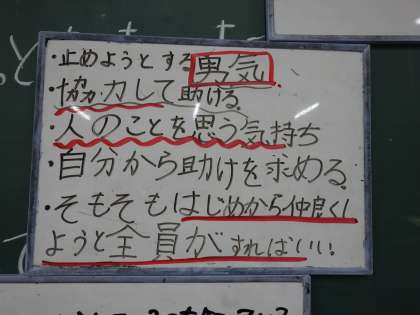 ・止めようとする勇気
・協力して助ける。
・人のことを思う気持ち
・自分から助けを求める。
・そもそもはじめから仲良くし
ようと全員がすればいい。